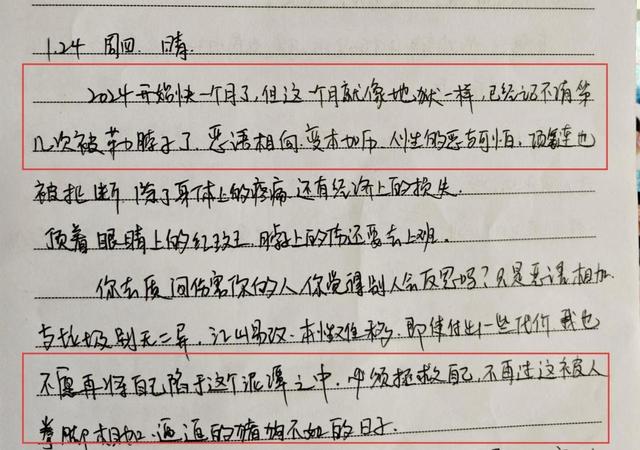 1.24 周四 晴.
2024开始快一个月了,但这个月就像地狱一样,已经记不清第
几次被勒脖子了.恶语相向.变本加厉.人性的恶与可怕,项链也
被扯断 除了身体上的疼痛 还有经济上的损失.
顶着眼睛上的红斑,脖子上的伤还要去上班.
你去质问伤害你的人你觉得别人会反思吗?只是恶语相加
与垃圾别无二异,江山易改.本性难移.即使付出一些代价我也
不愿再将自己陷于这个泥潭之中.必须拯救自己,不再过这被人
拳脚相加.逼迫的猪狗不如的日子.